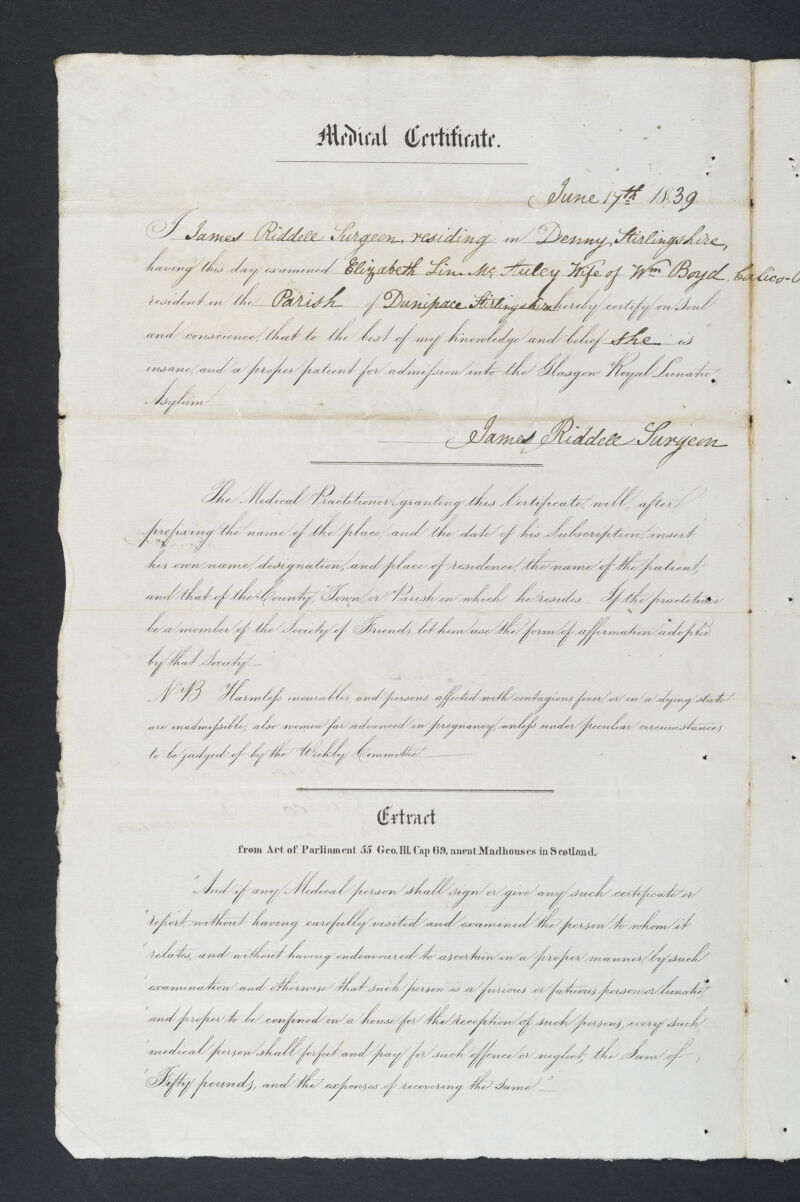 Medical Certificate.
June 17th 1839
I James Riddell Surgeon residing in Denny, Stirlingshire,
having this day examined Elizabeth Lin Mc Auley Wife of Wm Boyd, Calico-
resident in the Parish of Dunipace Stirlingshire hereby certify on Soul
and conscience, that to the best of my knowledge and belief she is
insane, and a proper patient for admission into the Glasgow Royal Lunatic
Asylum
James Riddell Surgeon
The Medical Practitioner, granting this Certificate, will, after
prefixing the name of the place, and the date of his Subscription, insert
his own name, designation, and place of residence, the name of the patient,
and that of the County, Town, or Parish in which he resides. If the practitioner
be a member of the Society of Friends, let him use the form of affirmation adopted
by that Society.
N.B. Harmless incurables, and persons affected with contagious fever, or in a dying state
are inadmissible, also women far advanced in pregnancy, unless under peculiar circumstances
to be judged of by the Weekly Committee.
Extract
from Act of Parliament 55 Geo. III. Cap 69, anent Madhouses in Scotland.
"And if any Medical person shall sign or give any such certificate or
"report, without having carefully visited and examined the person to whom it
"relates, and without having endeavoured to ascertain in a proper manner by such
"examination and otherwise that such person is a furious or fatuous person or lunatic,
"and proper to be confined in a house for the reception of such persons, every such
"medical person shall forfeit and pay for such offence or neglect, the Sum of
"Fifty pounds, and the expenses of recovering the same."